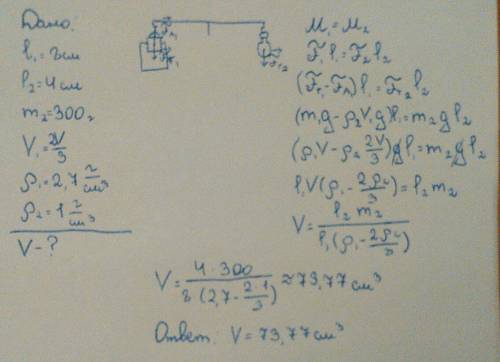 Дано:
l₁=8см
l₂=4см
m₂=300г
V₁=2V/3
ρ₁=2,7 г/см³
ρ₂=1 г/см³
V-?
M₁=M₂
F₁l₁=F₂l₂
(Fт₁-Fᴀ)l₁=Fт₂l₂
(m₁g-ρ₂V₁g)l₁=m₂gl₂
(ρ₁V-ρ₂ 2V/3)gl₁=m₂gl₂
l₁V(ρ₁-2ρ₂/3)=l₂m₂
V=l₂m₂/l₁(ρ₁-2ρ₂/3)
V=4·300/8(2,7-2·1/3)≈73,77см³
Ответ: V=73,77см³